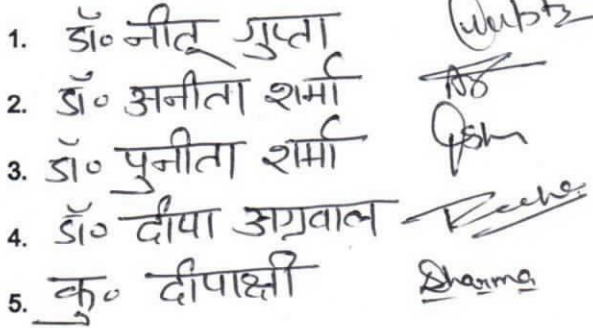 1. डॉ० नीतू गुप्ता
2. डॉ० अनीता शर्मा
3. डॉ० पुनीता शर्मा
4. डॉ० दीपा अग्रवाल
5. कु० दीपाक्षी Sharma